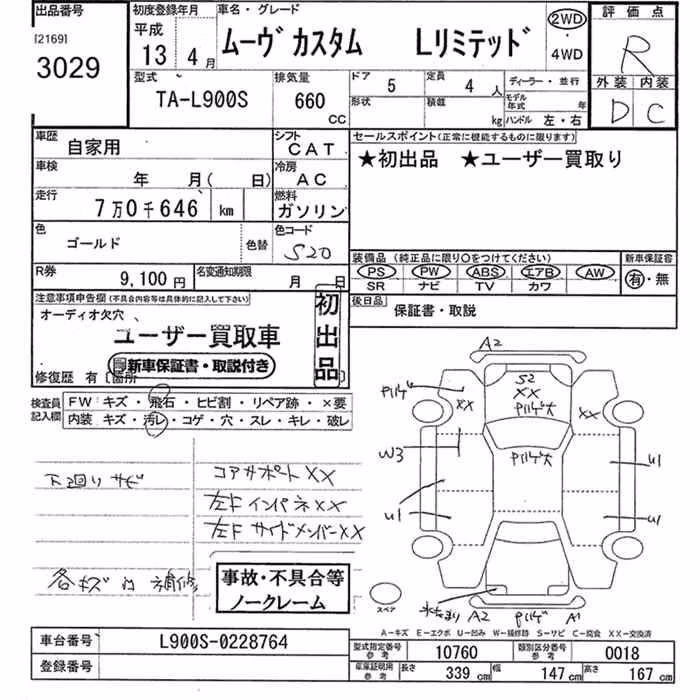 出品番号
[2169]
3029
初度登録年月
平成
13年4月
車名・グレード
ムーヴ カスタム Lリミテッド
2WD
4WD
評価点
R
外装 内装
D C
型式
TA-L900S
排気量
660
CC
ドア
5
定員
4人
ディーラー・並行
形状
積載
kg
モデル年式
年
ハンドル 左・右
車歴
自家用
シフト
CAT
車検
年 月( 日)
冷房
AC
走行
7万0千646 km
燃料
ガソリン
色
ゴールド
色替
色コード
S20
R券
9,100円
名変通知期限
月 日
セールスポイント(正常に機能するものに限ります)
★初出品 ★ユーザー買取り
装備品 (純正品に限り○をつけてください)
PS PW ABS エアB AW
SR ナビ TV カワ
新車保証書
有・無
後日品
保証書・取説
注意事項申告欄(不具合内容等は具体的に記入して下さい)
オーディオ欠穴
ユーザー買取車
新車保証書・取説付き
初出品
修復歴 有 [箇所 ]
検査員記入欄
FW キズ・飛石・ヒビ割・リペア跡・×要
内装 キズ・汚レ・コゲ・穴・スレ・キレ・破レ
下廻りサビ
コアサポートXX
左Fインパネ XX
左FサイドメンバーXX
各キズ凹補修
事故・不具合等
ノークレーム
A2
S2
XX
PハゲF大
Pハゲ
XX
XX
Pハゲ大
W3
U1
U1
U1
スペア
水たまり
A2
Pハゲ
A1
A−キズ E−エクボ U−凹み W−補修跡 S−サビ C−腐食 XX−交換済
車台番号
L900S-0228764
登録番号
型式指定番号
参考
10760
類別区分番号
参考
0018
車庫証明用
参考
長さ
339 cm
幅
147 cm
高さ
167 cm